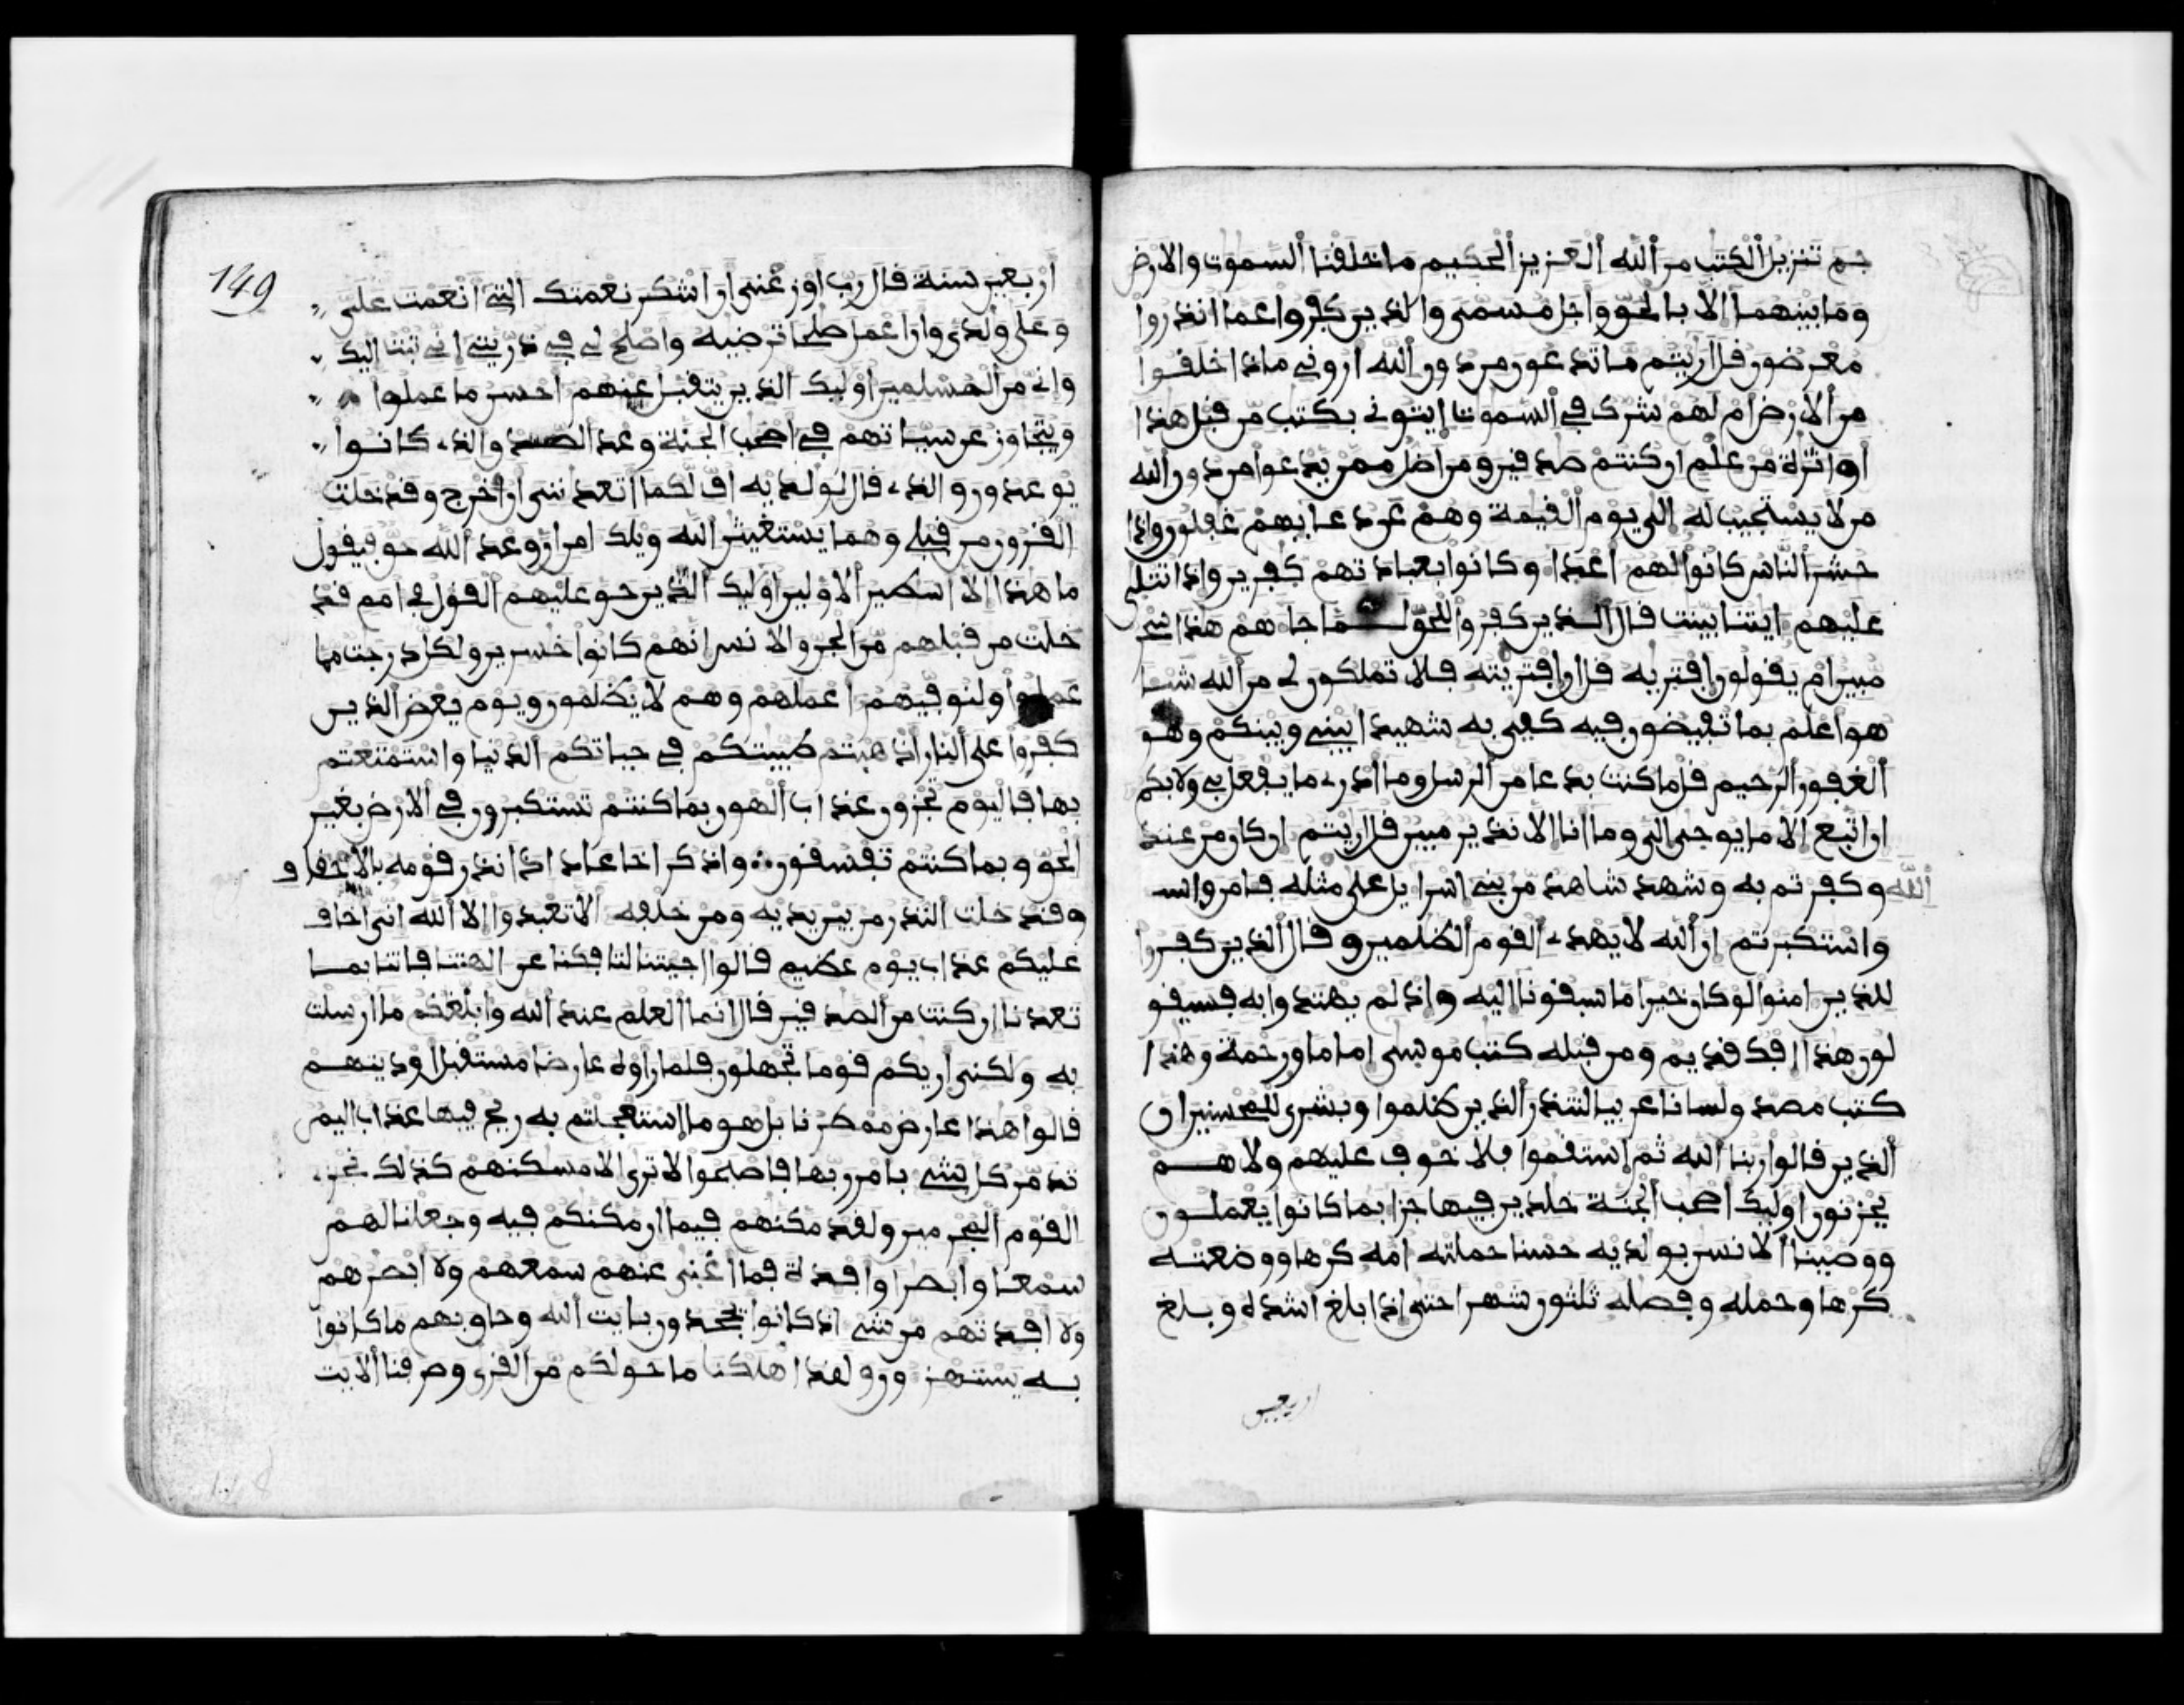 حم تنزيل الكتب من الله العزيز الحكيم ما خلفنا السموت والارض
وما بينهما الا بالحق واجل مسمى والذين كفروا عما انذروا
معرضون فل اريتم ما تدعون من دون الله اروني ماذا خلفوا
من الارض ام لهم شرك في السموت ايتوني بكتب من قبل هذا
او اثرة من علم ان كنتم صدفين ومن اضل ممن يدعوا من دون الله
من لا يستجيب له الى يوم الفيمة وهم عن دعايهم غفلون واذا
حشر الناس كانوا لهم اعدا وكانوا بعبادتهم كفرين واذا تتلى
عليهم ايتنا بينت قال الذين كفروا للحق لما جاهم هذا سحر
مبين ام يفولون افتريه فل ان افتريته فلا تملكون لي من الله شيا
هو اعلم بما تفيضون فيه كفى به شهيدا بيني وبينكم وهو
الغفور الرحيم فل ما كنت بدعا من الرسل وما ادري ما يفعل بي ولا بكم
ان اتبع الا ما يوحى الي وما انا الا نذير مبين فل اريتم ان كان من عند
الله وكفرتم به وشهد شاهد من بني اسرايل على مثله فامن واست
واستكبرتم ان الله لا يهدي الفوم الظلمين وقال الذين كفروا
للذين امنوا لو كان خيرا ما سبفونا اليه واذ لم يهتدوا به فسيفو
لون هذا افك فديم ومن قبله كتب موسى اماما ورحمة وهذا
كتب مصدق لسانا عربيا لتنذر الذين ظلموا وبشرى للمحسنين ان
الذين فالوا ربنا الله ثم استفموا فلا خوف عليهم ولا هم
يحزنون اوليك اصحب الجنة خلدين فيها جزا بما كانوا يعملون
ووصينا الانسن بولديه حسنا حملته امه كرها ووضعته
كرها وحمله وفصله ثلثون شهرا حتى اذا بلغ اشده وبلغ
اربعين
149
اربعين سنة فال رب اوزعني ان اشكر نعمتك التي انعمت علي
وعلى ولدي وان اعمل صلحا ترضيه واصلح لي في ذريتي اني تبت اليك
واني من المسلمين اوليك الذين يتفبل عنهم احسن ما عملوا
ويتجاوز عن سياتهم في اصحب الجنة وعد الصدق الذي كانوا
يوعدون والذي فال لولديه اف لكما اتعدنني ان اخرج وفد خلت
الفرون من قبلي وهما يستغيثن الله ويلك امن ان وعد الله حق فيفول
ما هذا الا اسطير الاولين اوليك الذين حق عليهم الفول في امم فد
خلت من فبلهم من الجن والانس انهم كانوا خسرين ولكل درجت مما
عملوا ولنوفيهم اعملهم وهم لا يظلمون ويوم يعرض الذين
كفروا على النار اذهبتم طيبتكم في حياتكم الدنيا واستمتعتم
بها فاليوم تجزون عذاب الهون بما كنتم تستكبرون في الارض بغير
الحق وبما كنتم تفسفون واذكر اخا عاد اذ انذر قومه بالاحفاف
وفد خلت النذر من بين يديه ومن خلفه الا تعبدوا الا الله اني اخاف
عليكم عذاب يوم عظيم فالوا اجيتنا لتافكنا عن الهتنا فاتنا بما
تعدنا ان كنت من الصدفين فال انما العلم عند الله وابلغكم ما ارسلت
به ولكني اريكم فوما تجهلون فلما راوه عارضا مستفبل اوديتهم
فالوا هذا عارض ممطرنا بل هو ما استعجلتم به ريح فيها عذاب اليم
تدمر كل شي بامر ربها فاصبحوا لا ترى الا مسكنهم كذلك نجزي
الفوم المجرمين ولفد مكنهم فيما ان مكنكم فيه وجعلنا لهم
سمعا وابصرا وافدة فما اغنى عنهم سمعهم ولا ابصرهم
ولا افدتهم من شي اذ كانوا يجحدون بايت الله وحاق بهم ما كانوا
به يستهزون ولفد اهلكنا ما حولكم من الفرى وصرفنا الايت